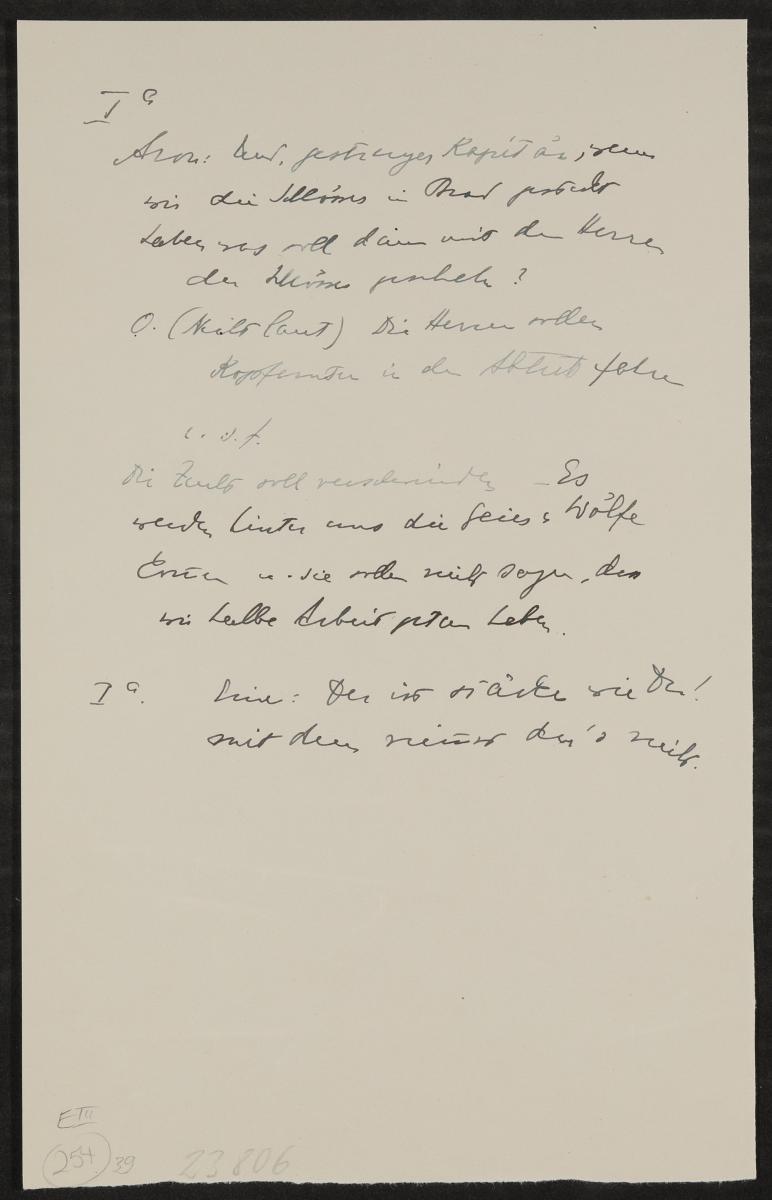 I a
Aron: Und, gestrenger Kapitän, wenn
wir die Schlösser in Brand gesteckt
haben was soll dann mit den Herren
der Schlösser geschehn?
O. (Nicht laut) Die Herren sollen
Kopfunter in den Abtritt fahren
u. s. f.
Die Zucht soll verschwinden – Es
werden hinter uns die Geier u Wölfe
Ernten u. sie sollen nicht sagen, dass
wir halbe Arbeit getan haben.
I a. Eine: Der ist stärker wie Du!
mit dem nimmst du's nicht.
E III
254 39 23806